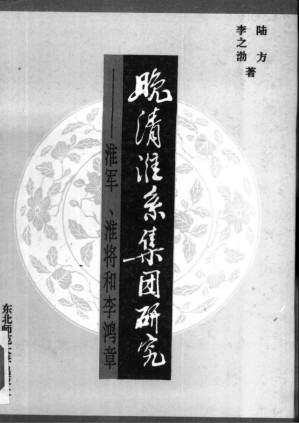 陆方
李之渤 著
晚清淮系集团研究
——淮军、淮将和李鸿章
东北师范大学